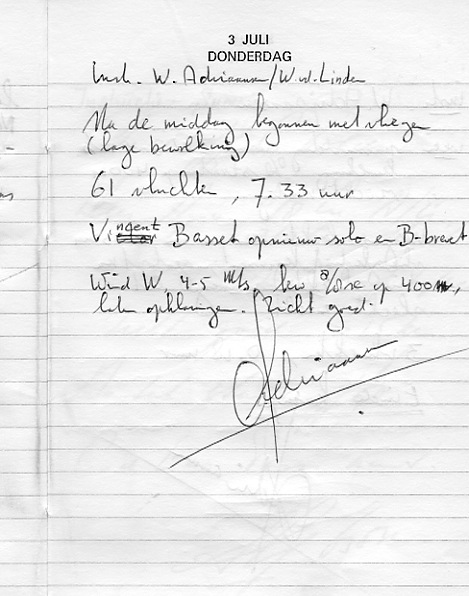 3 JULI
DONDERDAG
Instr. W. Adriaansen/W.v.d.Linden
Na de middag begonnen met vliegen
(lage bewolking)
61 vluchten, 7.33 uur
Vincent Basset opnieuw solo en B-brevet
Wind W, 4-5 m/s, bew 8/8 op 400m,
later opklaringen. Zicht goed.
Adriaansen